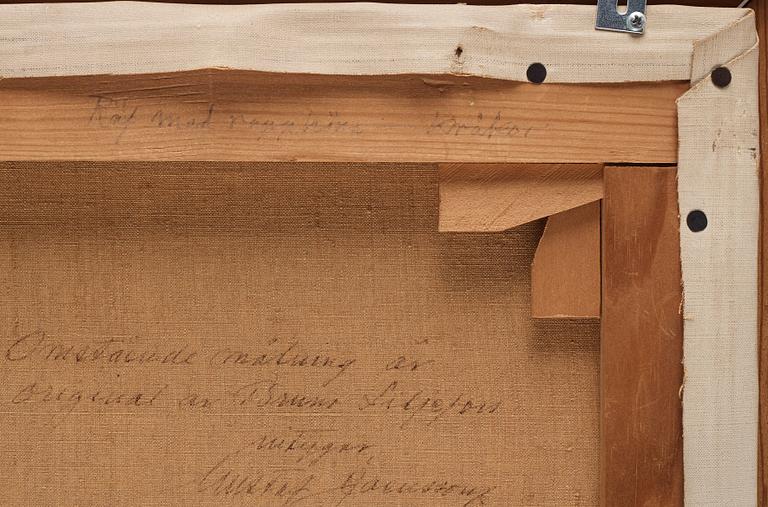 Räf med rapphöna kråkor
Omstående målning är
original av Bruno Liljefors
intygar,
Gustaf